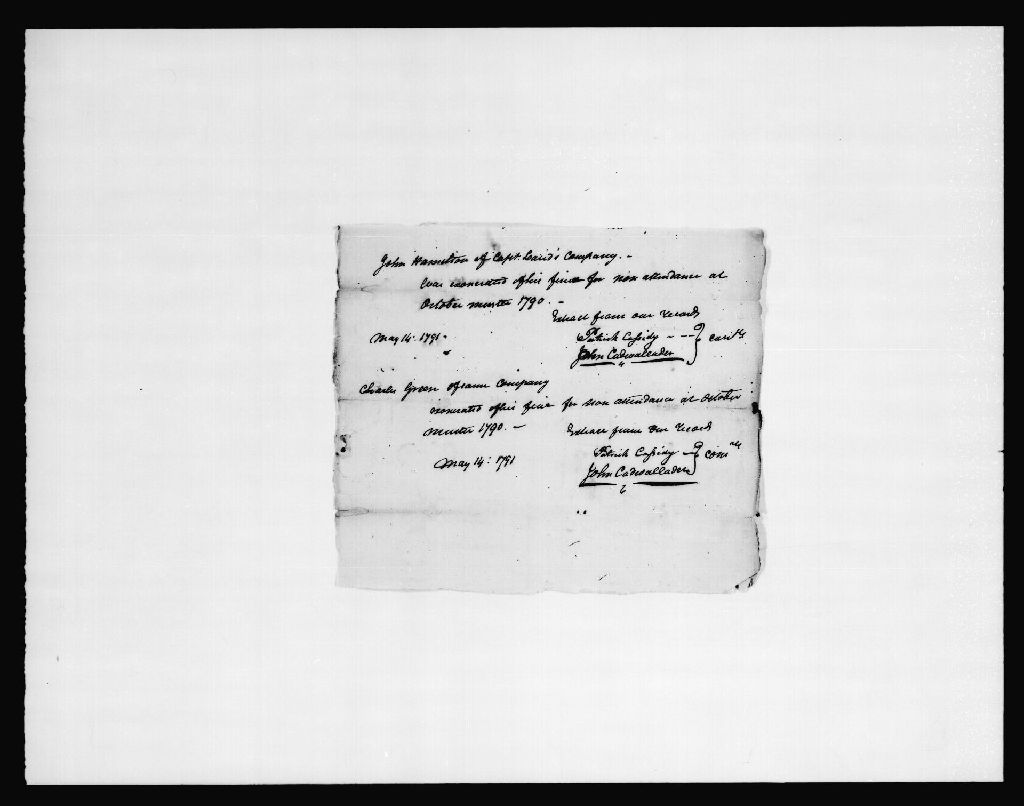 John Hamilton of Capt. Laird's Company. -
Was exonerated of his fine for non attendance at
October muster 1790. -
Extract from our records
May 14. 1791.
Patrick Cassidy - - -
John Cadwallader
Charles Green of same Company
exonerated of his fine for non attendance at October
muster 1790. -
Extract from our record
May 14: 1791
Patrick Cassidy -
John Cadwallader